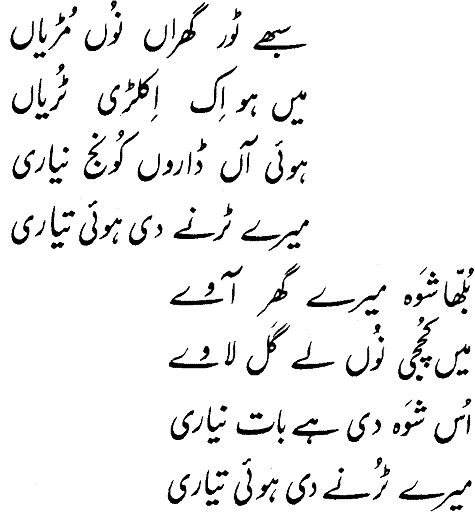 سبھے ٹور گھراں نُوں مُڑیاں
میں ہو اِک اِکلڑی ٹُریاں
ہوئی آں ڈاروں کُونج نیاری
میرے ٹرنے دی ہوئی تیاری
بُلّھا شَوہ میرے گھرِ آوے
میں کُچجّی نُوں لے گَل لاوے
اُس شَوہ دی ہے بات نیاری
میرے ٹُرنے دی ہوئی تیاری